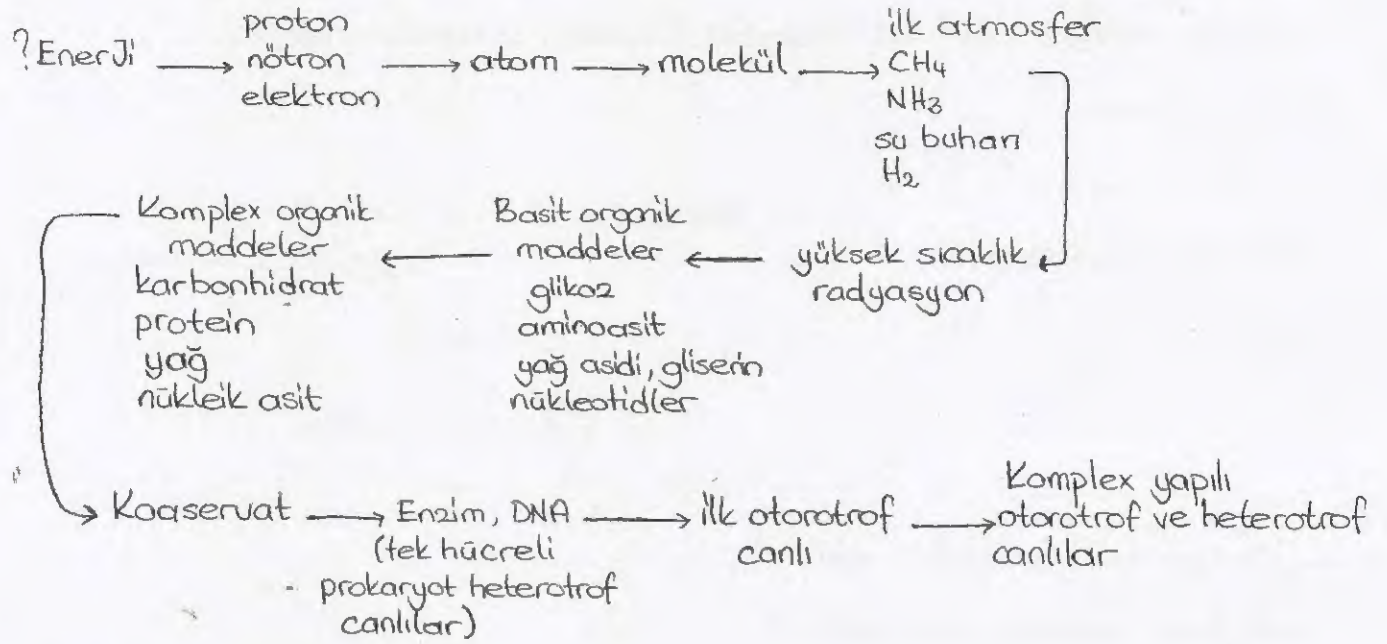 ?EnerJi → proton nötron elektron → atom → molekül → ilk atmosfer
CH4
NH3
su buharı
H2
yüksek sıcaklık
radyasyon
Basit organik
maddeler
glikoz
aminoasit
yağ asidi, gliserin
nükleotidler
Komplex organik
maddeler
karbonhidrat
protein
yağ
nükleik asit
Koaservat → Enzim, DNA
(tek hücreli
prokaryot heterotrof
canlılar)
→ ilk otorotrof
canlı
→ Komplex yapılı
otorotrof ve heterotrof
canlılar